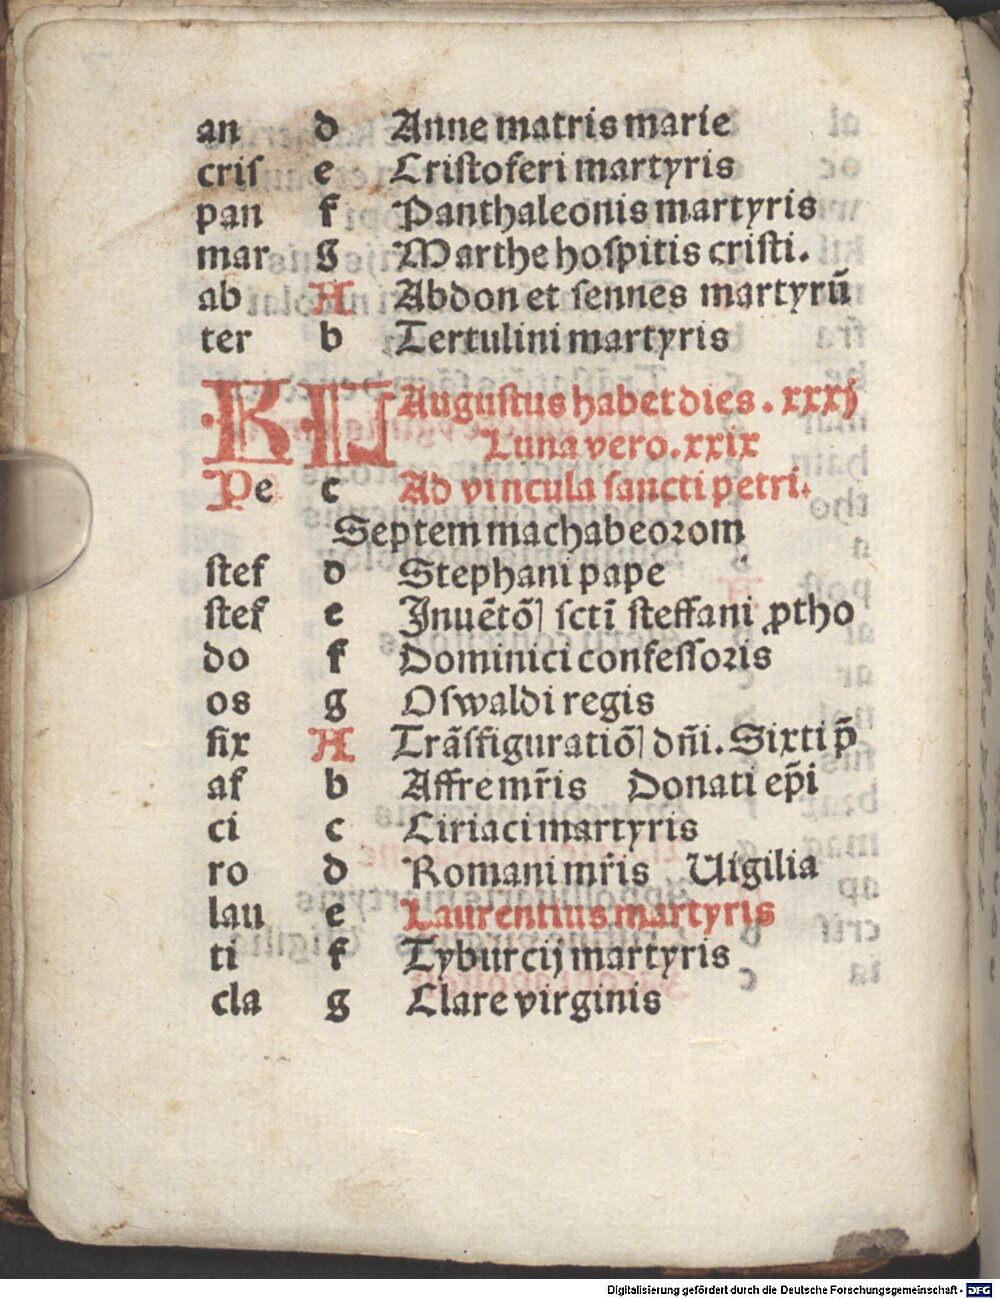 an d Anne matris marie
criſ e Criſtoferi martyris
pan f Panthaleonis martyris
mar g Marthe hoſpitis criſti.
ab A Abdon et ſennes martyrū
ter b Tertulini martyris
KL Auguſtus habet dies . xxxj
Luna vero . xxix
Pe c Ad vincula ſancti petri.
Septem machabeoꝛom
ſtef d Stephani pape
ſtef e Inuētō ſctī ſteffani ꝓtho
do f Dominici confeſſoꝛis
os g Oſwaldi regis
ſix A Trāſfiguratiō dn̄i. Sixti p̄
af b Affre mr̄is Donati ep̄i
ci c Ciriaci martyris
ro d Romani mr̄is Uigilia
lau e Laurentius martyris
ti f Tyburcij martyris
cla g Clare virginis
Digitalisierung gefördert durch die Deutsche Forschungsgemeinschaft - DFG